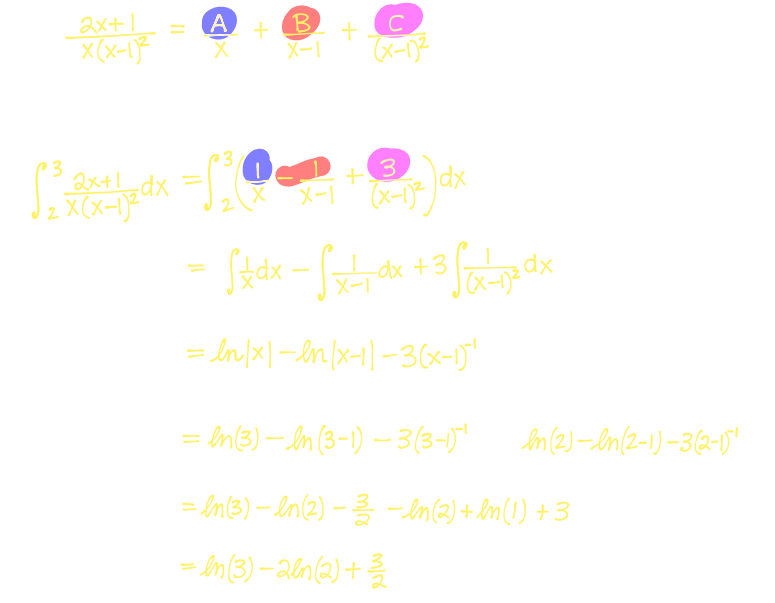 (2x+1)/(x(x-1)²) = A/x + B/(x-1) + C/(x-1)²
∫₂³ (2x+1)/(x(x-1)²) dx = ∫₂³ (1/x - 1/(x-1) + 3/(x-1)²) dx
= ∫ 1/x dx - ∫ 1/(x-1) dx + 3 ∫ 1/(x-1)² dx
= ln|x| - ln|x-1| - 3(x-1)⁻¹
= ln(3) - ln(3-1) - 3(3-1)⁻¹ ln(2) - ln(2-1) - 3(2-1)⁻¹
= ln(3) - ln(2) - 3/2 - ln(2) + ln(1) + 3
= ln(3) - 2ln(2) + 3/2